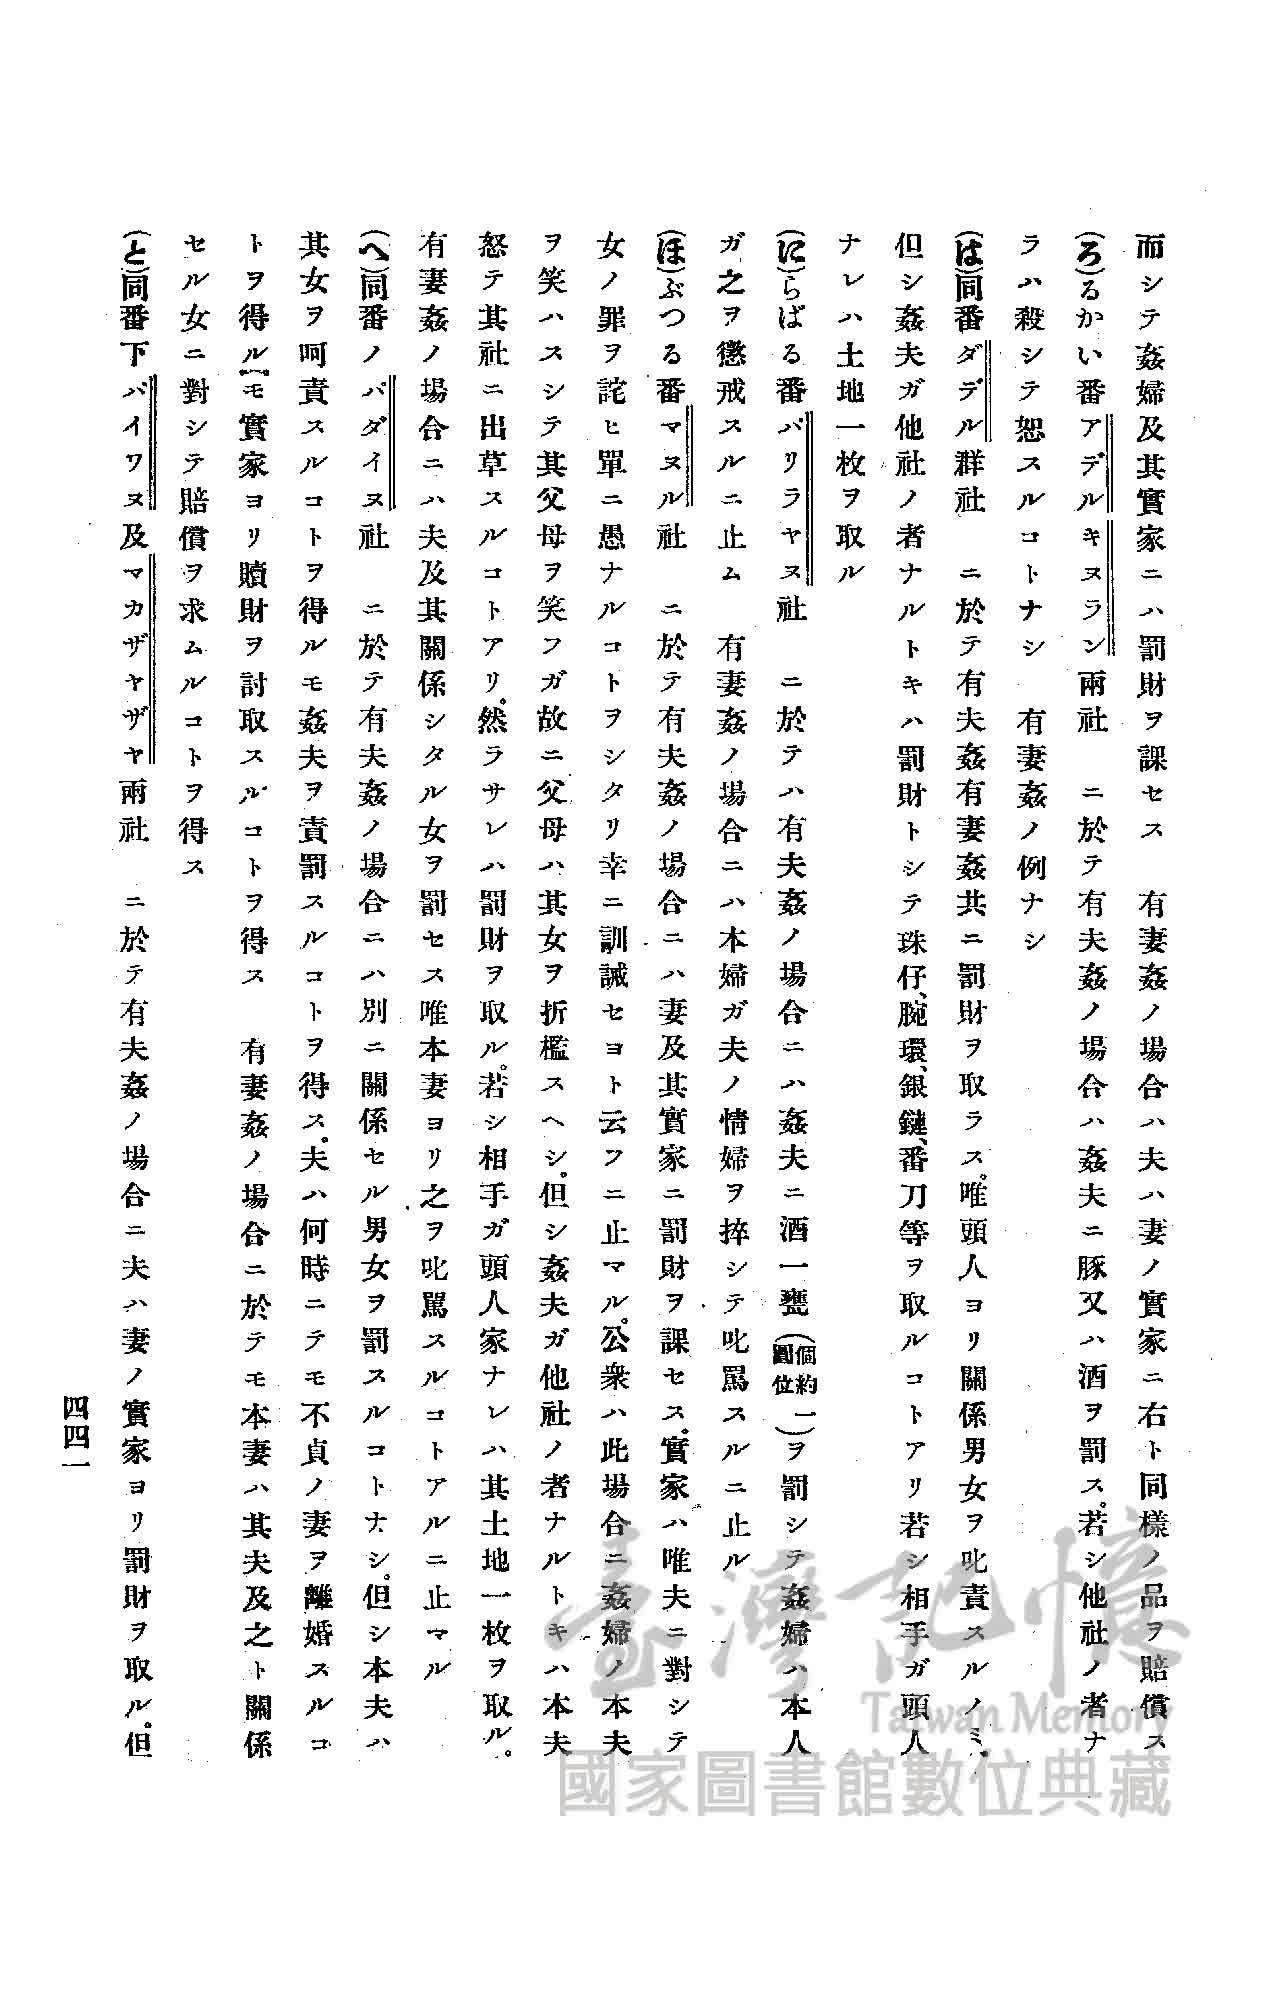 而シテ姦婦及其實家ニハ罰財ヲ課セス　有妻姦ノ場合ハ夫ハ妻ノ實家ニ右ト同樣ノ品ヲ賠償ス
(ろ)るかい番アデルキヌラン兩社　ニ於テ有夫姦ノ場合ハ姦夫ニ豚又ハ酒ヲ罰ス。若シ他社ノ者ナ
ラハ殺シテ恕スルコトナシ　有妻姦ノ例ナシ
(は)同番ダデル群社　ニ於テ有夫姦有妻姦共ニ罰財ヲ取ラス。唯頭人ヨリ關係男女ヲ叱責スルノミ、
但シ姦夫ガ他社ノ者ナルトキハ罰財トシテ珠仔、腕環、銀鏈、番刀等ヲ取ルコトアリ若シ相手ガ頭人
ナレハ土地一枚ヲ取ル
(に)らばる番パリラヤヌ社　ニ於テハ有夫姦ノ場合ニハ姦夫ニ酒一甕(個約一圓位)ヲ罰シテ姦婦ハ本人
ガ之ヲ懲戒スルニ止ム　有妻姦ノ場合ニハ本婦ガ夫ノ情婦ヲ捽シテ叱罵スルニ止ル
(ほ)ぶつる番マヌル社　ニ於テ有夫姦ノ場合ニハ妻及其實家ニ罰財ヲ課セス。實家ハ唯夫ニ對シテ
女ノ罪ヲ詫ヒ單ニ愚ナルコトヲシタリ幸ニ訓誡セヨト云フニ止マル。公衆ハ此場合ニ姦婦ノ本夫
ヲ笑ハスシテ其父母ヲ笑フガ故ニ父母ハ其女ヲ折檻スヘシ。但シ姦夫ガ他社ノ者ナルトキハ本夫
怒テ其社ニ出草スルコトアリ。然ラサレハ罰財ヲ取ル。若シ相手ガ頭人家ナレハ其土地一枚ヲ取ル。
有妻姦ノ場合ニハ夫及其關係シタル女ヲ罰セス唯本妻ヨリ之ヲ叱罵スルコトアルニ止マル
(へ)同番ノパダイヌ社　ニ於テ有夫姦ノ場合ニハ別ニ關係セル男女ヲ罰スルコトナシ。但シ本夫ハ
其女ヲ呵責スルコトヲ得ルモ姦夫ヲ責罰スルコトヲ得ス。夫ハ何時ニテモ不貞ノ妻ヲ離婚スルコ
トヲ得ルモ實家ヨリ贖財ヲ討取スルコトヲ得ス　有妻姦ノ場合ニ於テモ本妻ハ其夫及之ト關係
セル女ニ對シテ賠償ヲ求ムルコトヲ得ス
(と)同番下パイワヌ及マカザヤザヤ兩社　ニ於テ有夫姦ノ場合ニ夫ハ妻ノ實家ヨリ罰財ヲ取ル。但
四四一
臺灣記憶
Taiwan Memory
國家圖書館數位典藏